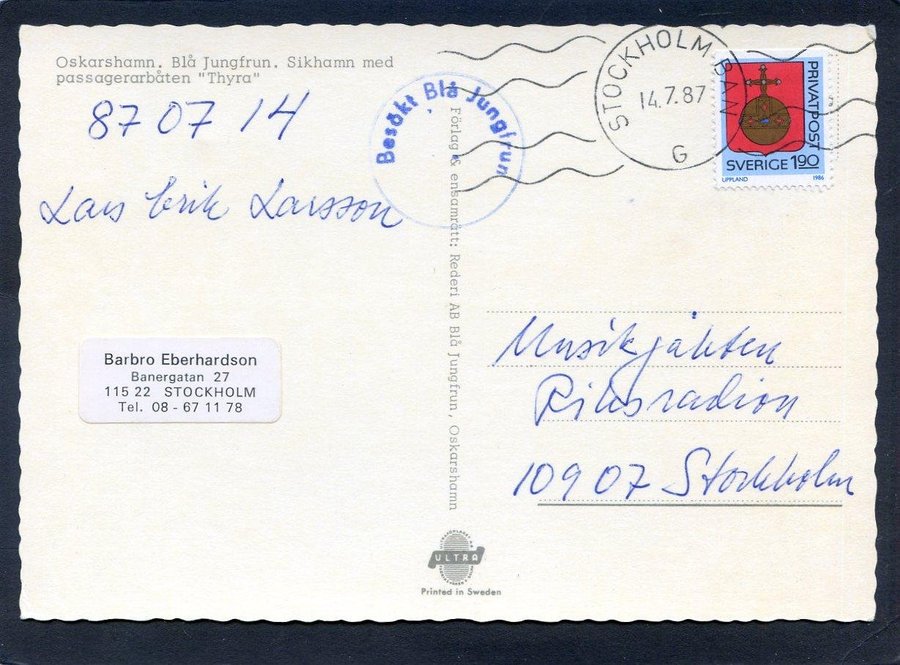 Oskarshamn. Blå Jungfrun. Sikhamn med
passagerarbåten "Thyra"
87 07 14
Lars Erik Larsson
Barbro Eberhardson
Banergatan 27
115 22 STOCKHOLM
Tel. 08 - 67 11 78
Besökt Blå Jungfrun
Förlag & ensamrätt: Rederi AB Blå Jungfrun, Oskarshamn
ULTRA
Printed in Sweden
STOCKHOLM BAN
14.7.87
G
PRIVATPOST
SVERIGE 1.90
UPPLAND 1986
Musikjakten
Riksradion
10907 Stockholm